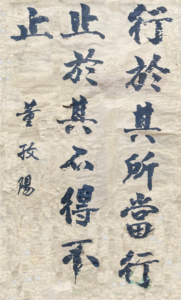 行於其所當行
止於其不得不
止
董孜陽